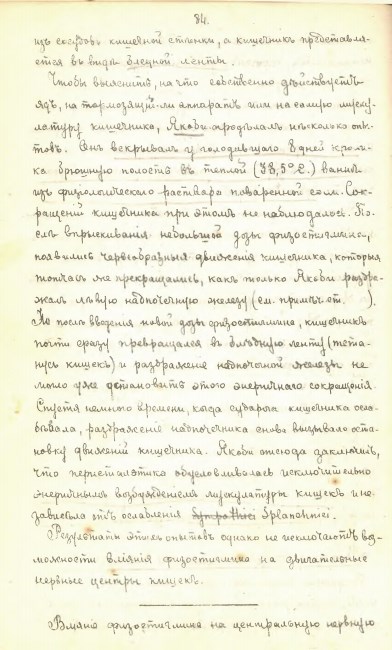 84.
изъ сосудовъ кишечной стѣнки, а кишечникъ представля-
ется въ видѣ блѣдной ленты.
Чтобы выяснить, на что собственно дѣйствуетъ
ядъ, на тормозящій-ли аппаратъ или на самую муску-
латуру кишечника, Якоби продѣлалъ нѣсколько опы-
товъ. Онъ вскрывалъ у голодавшаго дней кроли-
ка брюшную полость въ теплой (38,5° С.) ваннѣ
изъ физіологическаго раствора поваренной соли. Сок-
ращеній кишечника при этомъ не наблюдалось. По-
слѣ впрыскиванія небольшой дозы физостигмина,
появились червеобразныя движенія кишечника, которыя
тотчасъ же прекращались, какъ только Якоби раздра-
жалъ лѣвую надпочечную железу (см. примѣч. ст. ).
Но послѣ введенія новой дозы физостигмина, кишечникъ
почти сразу превращался въ блѣдную ленту (тета-
нусъ кишекъ) и раздраженіе надпочечной железы не
могло уже остановить этого энергичнаго сокращенія.
Спустя немного времени, когда судорога кишечника осла-
бѣвала, раздраженіе надпочечника снова вызывало оста-
новку движеній кишечника. Якоби отсюда заключилъ,
что перистальтика обусловливалась исключительно
энергичнымъ возбужденіемъ мускулатуры кишекъ и не
зависѣла отъ ослабленія Sympathici Splanchnici.
Результаты этихъ опытовъ однако не исключаютъ воз-
можности вліянія физостигмина на двигательные
нервные центры кишекъ.
Вліяніе физостигмина на центральную нервную